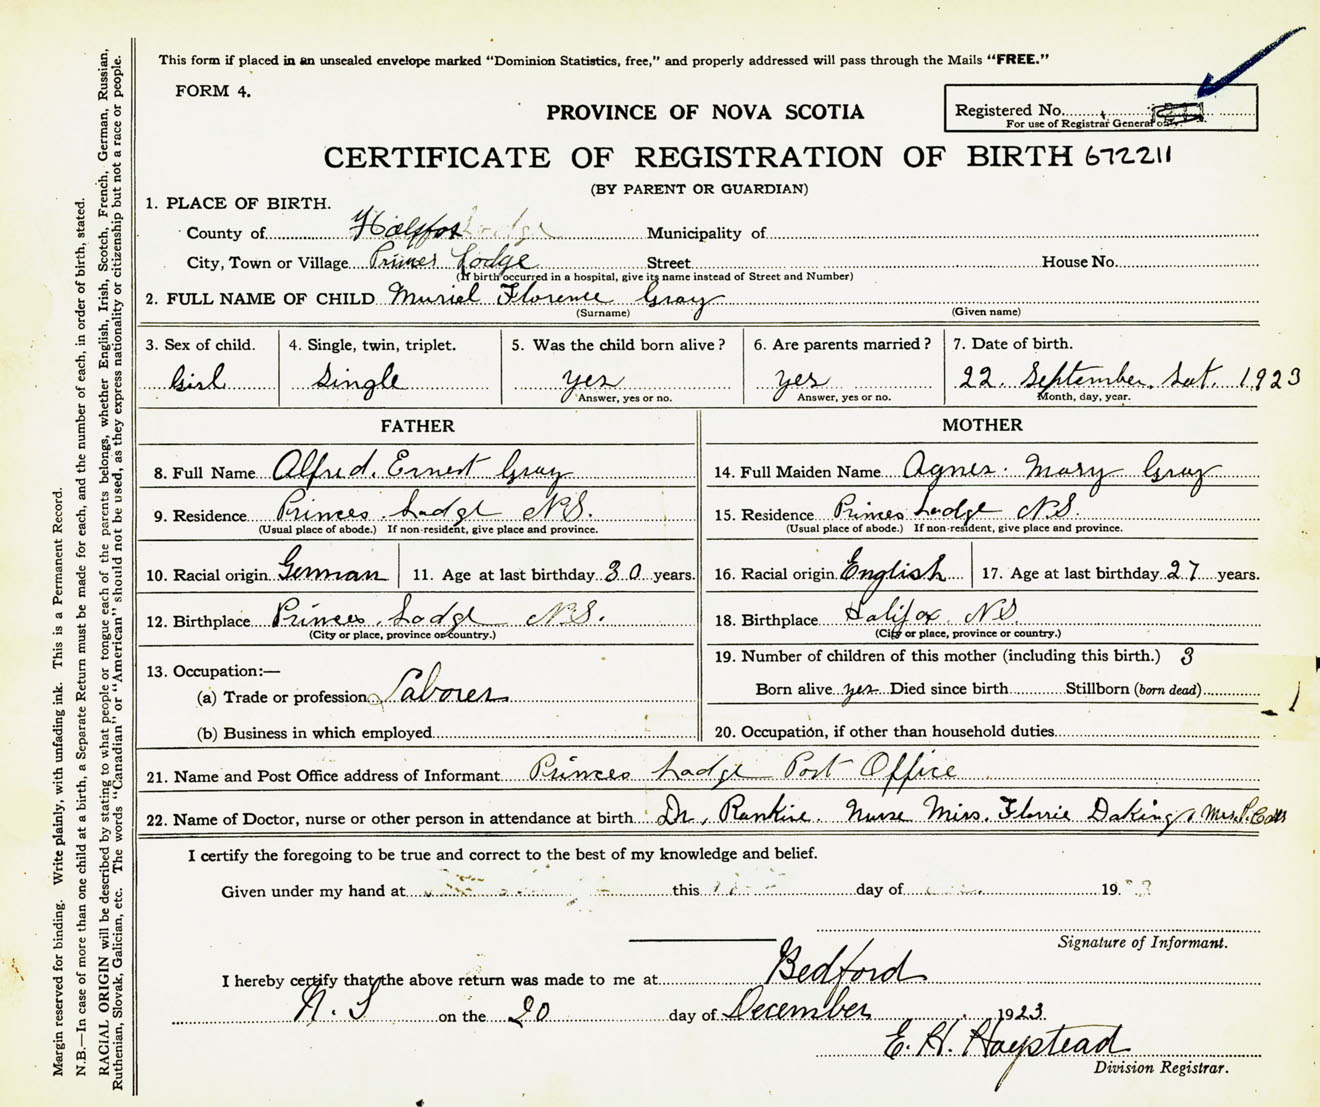 This form if placed in an unsealed envelope marked "Dominion Statistics, free," and properly addressed will pass through the Mails "FREE."
FORM 4.
Registered No.
For use of Registrar General only.
PROVINCE OF NOVA SCOTIA
CERTIFICATE OF REGISTRATION OF BIRTH 672211
(BY PARENT OR GUARDIAN)
1. PLACE OF BIRTH.
County of Halifax Lodge Municipality of
City, Town or Village Princes Lodge Street House No.
(If birth occurred in a hospital, give its name instead of Street and Number)
2. FULL NAME OF CHILD Muriel Florence Gray
(Surname) (Given name)
3. Sex of child. 4. Single, twin, triplet. 5. Was the child born alive? 6. Are parents married? 7. Date of birth.
Girl Single yes yes 22. September. Sat. 1923
Answer, yes or no. Answer, yes or no. Month, day, year.
FATHER MOTHER
8. Full Name Alfred. Ernest Gray 14. Full Maiden Name Agnes. Mary Gray
9. Residence Princes. Lodge N.S. 15. Residence Princes Lodge N.S.
(Usual place of abode.) If non-resident, give place and province. (Usual place of abode.) If non-resident, give place and province.
10. Racial origin German 11. Age at last birthday 30 years. 16. Racial origin English 17. Age at last birthday 27 years.
12. Birthplace Princes. Lodge N.S. 18. Birthplace Halifax. N.S.
(City or place, province or country.) (City or place, province or country.)
13. Occupation:— 19. Number of children of this mother (including this birth.) 3
(a) Trade or profession Laborer Born alive yes Died since birth Stillborn (born dead)
(b) Business in which employed 20. Occupation, if other than household duties
21. Name and Post Office address of Informant Princes Lodge Post Office
22. Name of Doctor, nurse or other person in attendance at birth Dr. Rankine. Nurse Miss. Florrie Daking, Mrs.
I certify the foregoing to be true and correct to the best of my knowledge and belief.
Given under my hand at this day of 19
Signature of Informant.
I hereby certify that the above return was made to me at Bedford
N.S on the 20 day of December 1923
E. H. Haystead
Division Registrar.
Margin reserved for binding. Write plainly, with unfading ink. This is a Permanent Record.
N.B.—In case of more than one child at a birth, a Separate Return must be made for each, and the number of each, in order of birth, stated.
RACIAL ORIGIN will be described by stating to what people or tongue each of the parents belongs, whether English, Irish, Scotch, French, German, Russian,
Ruthenian, Slovak, Galician, etc. The words "Canadian" or "American" should not be used, as they express nationality or citizenship but not a race or people.